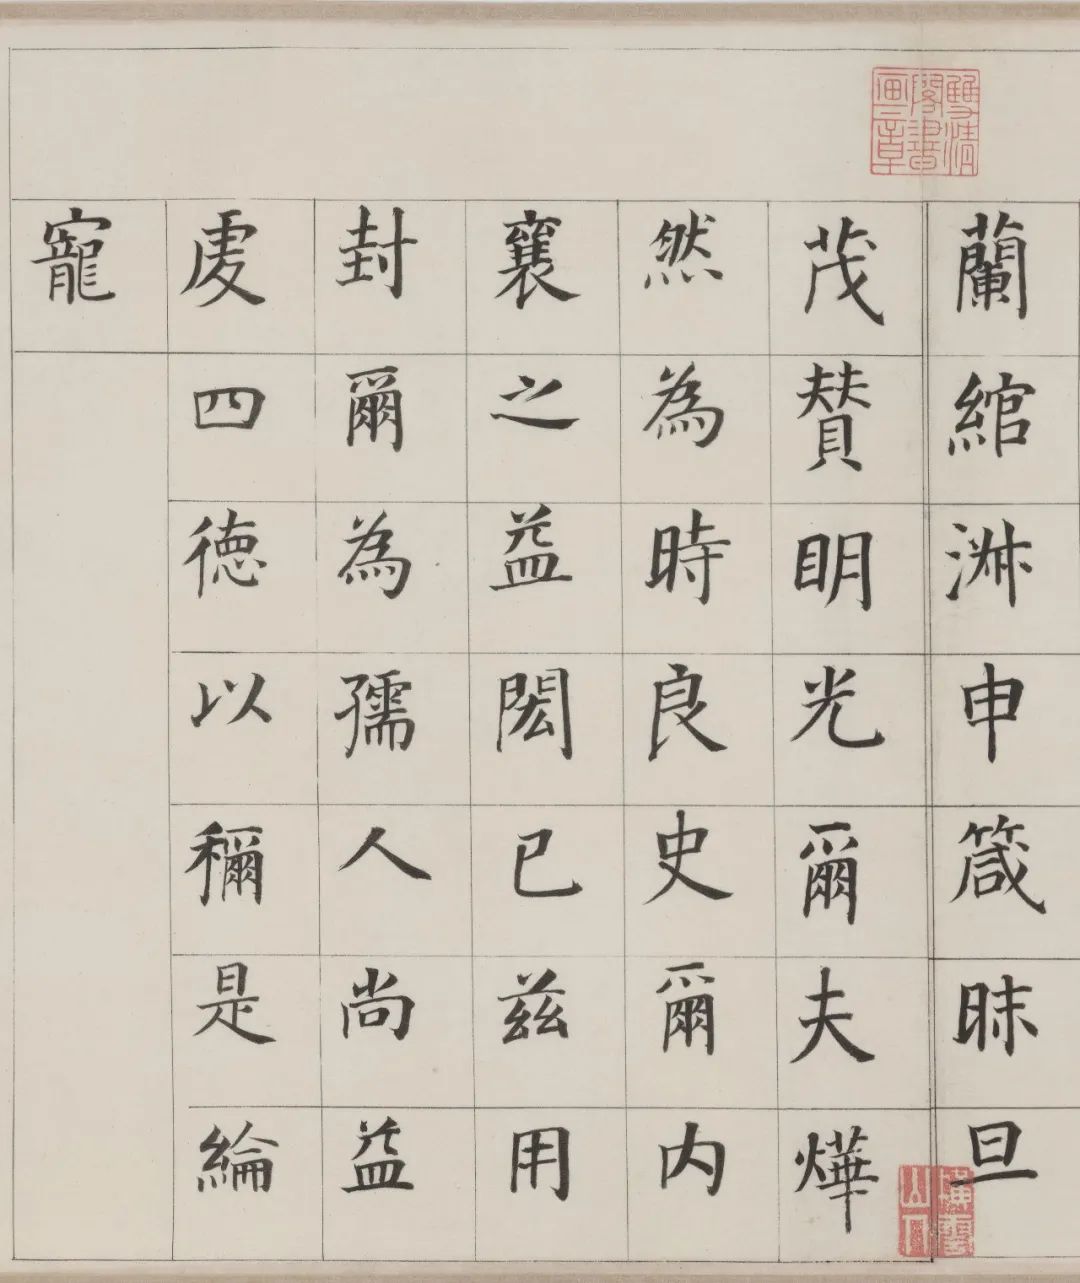 雙清閣書画章
蘭綰申箴昧旦
茂賛眀光爾夫燁
然為時良史爾内
襄之益閎已茲用
封爾為孺人尚益
虔四德以穪是綸
寵